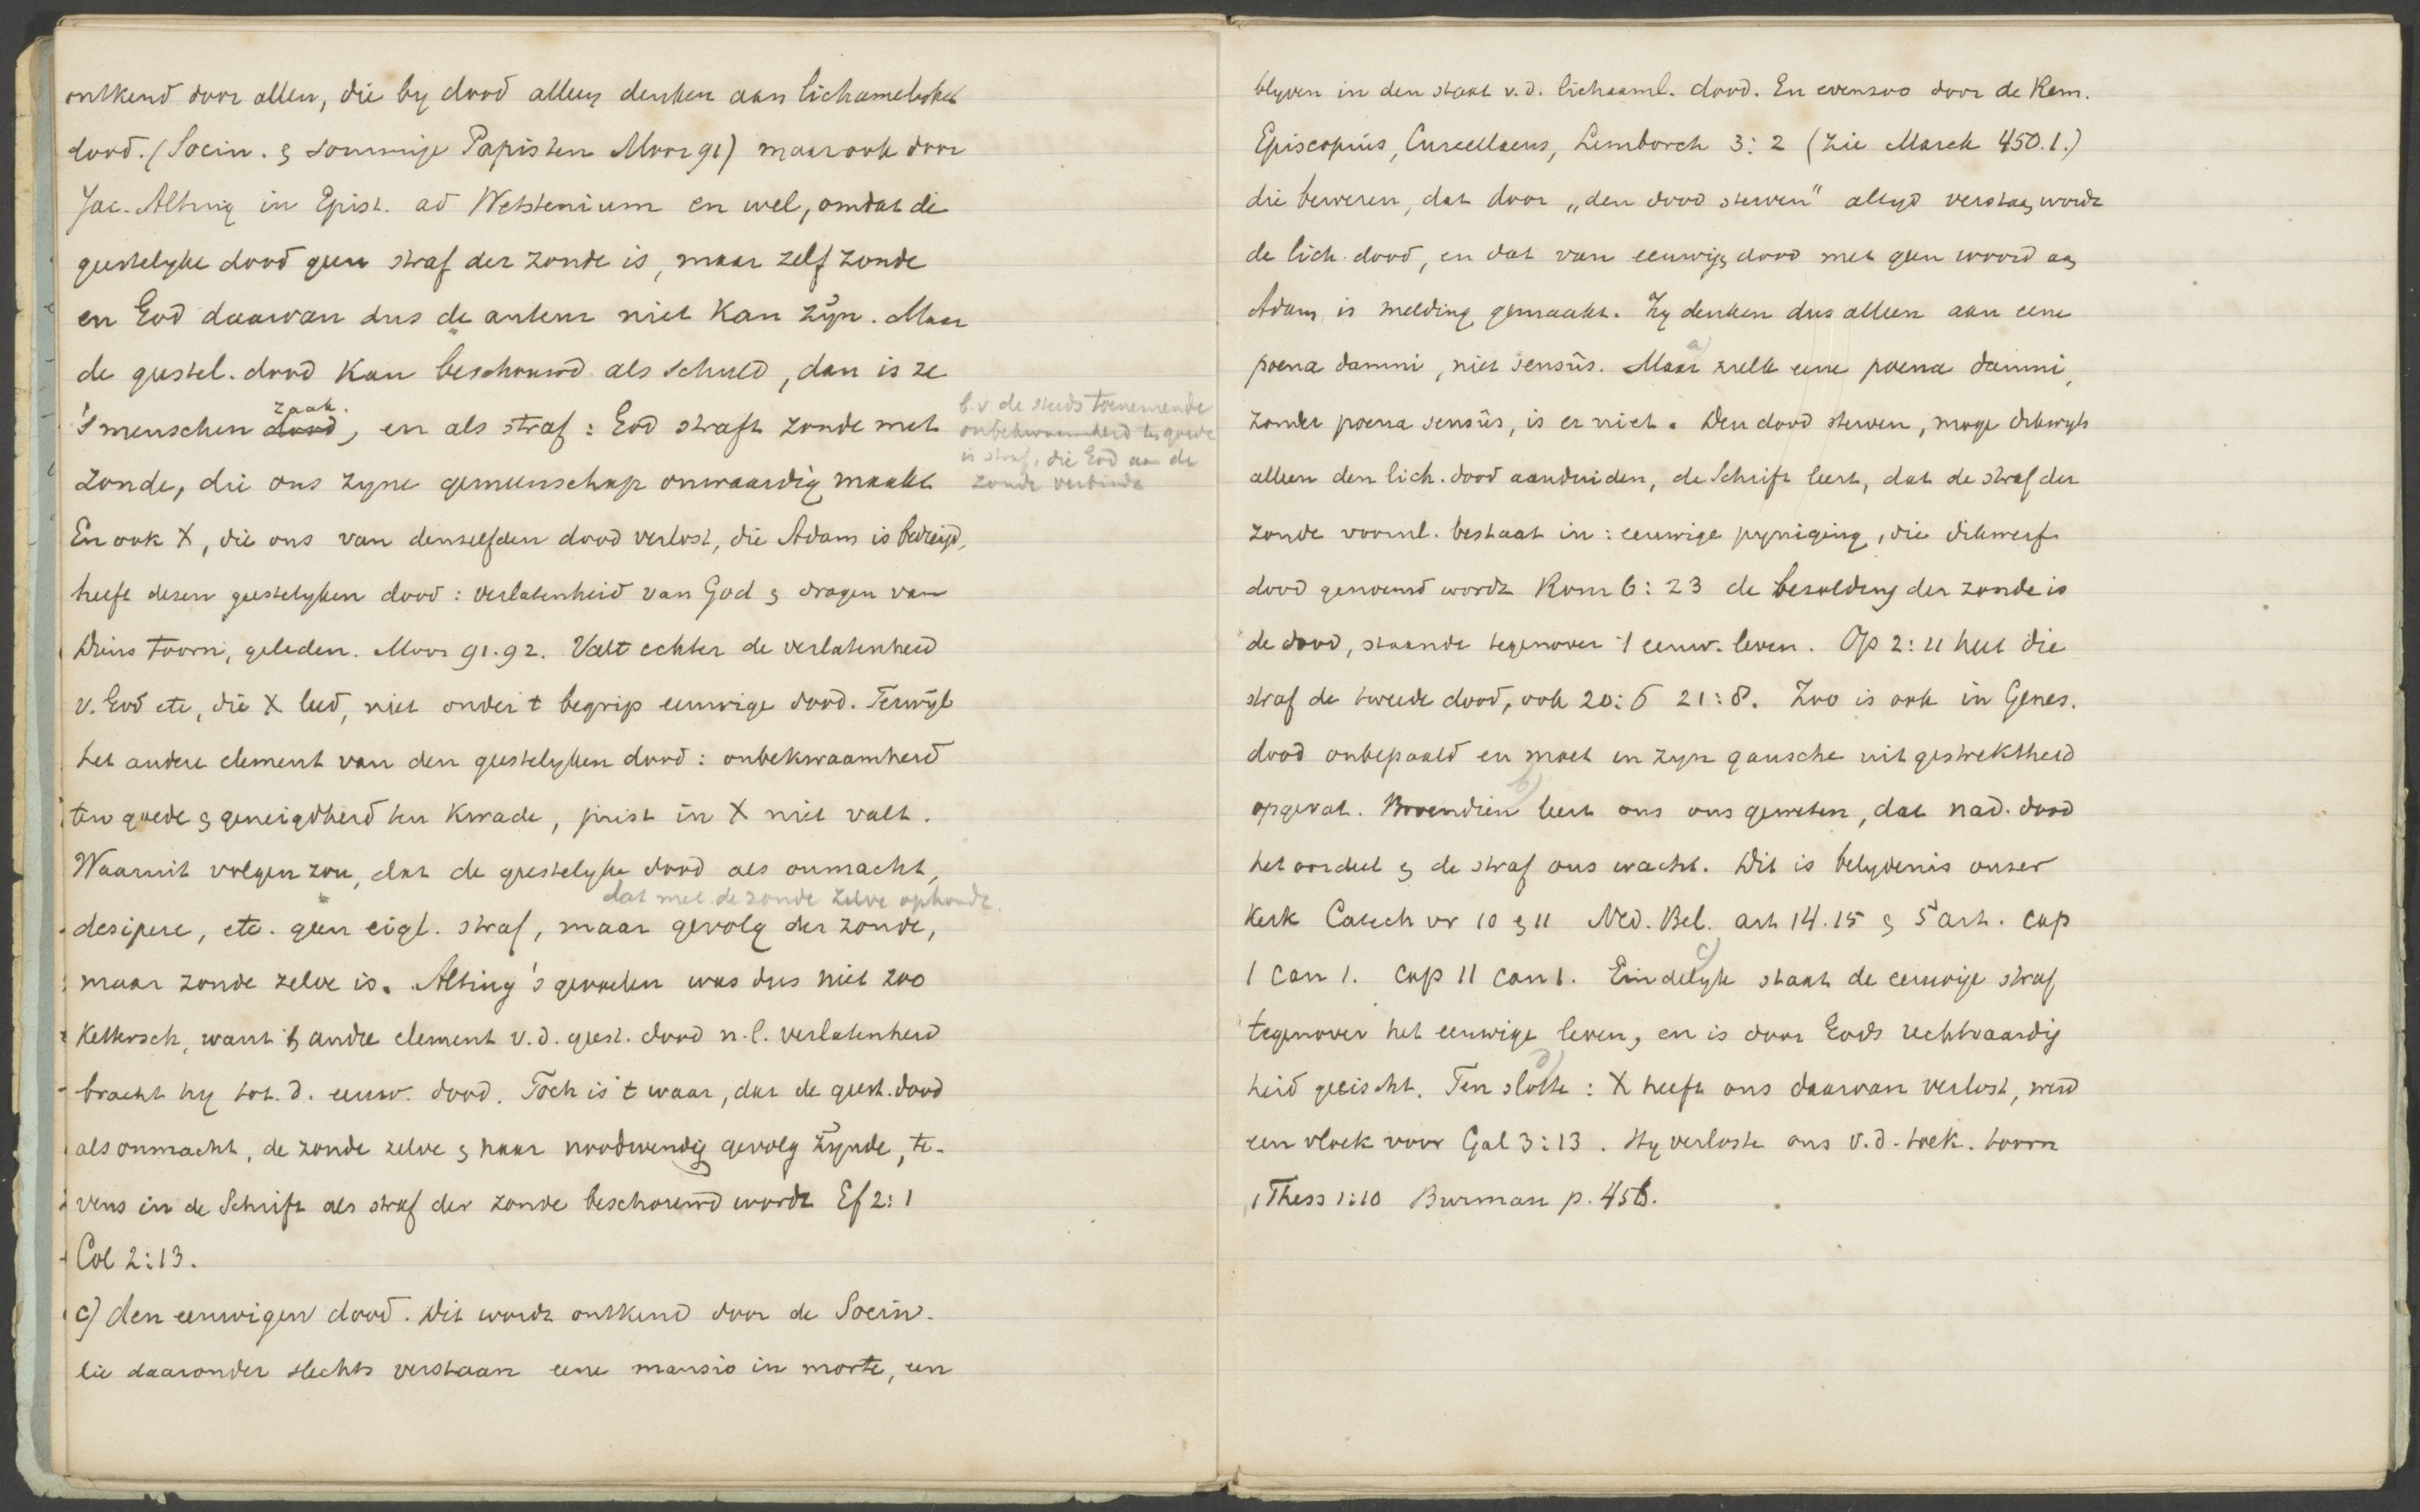 ontkend door allen, die by dood alleen denken aan lichamelyken
dood. (Socin. & sommige Papisten Moor 91) maar ook door
Jac. Alting in Epist. ad Wetstenium en wel, omdat de
geestelyke dood geen straf der zonde is, maar zelf zonde
en God daarvan dus de auteur niet kan zyn. Maar
de geestel. dood kan beschouwd als schuld, dan is ze
's menschen dood zaak, en als straf: God straft zonde met
zonde, die ons zyne gemeenschap onwaardig maakt
b.v. de steeds toenemende
onbekwaamheid ten goede
is straf, die God aan de
zonde verbindt
En ook X, die ons van denzelfden dood verlost, die Adam is bedreigd,
heeft dezen geestelyken dood: verlatenheid van God & dragen van
Diens toorn, geleden. Moor 91.92. Valt echter de verlatenheid
v. God etc, die X leed, niet onder 't begrip eeuwige dood. Terwyl
het andere element van den geestelyken dood: onbekwaamheid
ten goede & geneigdheid ten kwade, juist in X niet valt.
Waaruit volgen zou, dat de geestelyke dood als onmacht,
dat met de zonde zelve ophoudt.
desipere, etc. geen eigl. straf, maar gevolg der zonde,
maar zonde zelve is. Alting's gevoelen was dus niet zoo
kettersch, want 't andre element v.d. geest. dood n.l. verlatenheid
bracht hy tot. d. eeuw. dood. Toch is 't waar, dat de geest. dood
als onmacht, de zonde zelve & haar noodwendig gevolg zynde, te-
vens in de Schrift als straf der zonde beschouwd wordt Ef 2:1
Col 2:13.
c) den eeuwigen dood. Dit wordt ontkend door de Socin.
die daaronder slechts verstaan eene mansio in morte, een
blyven in den staat v.d. lichaaml. dood. En evenzoo door de Rem.
Episcopius, Curcellaeus, Limborch 3:2 (zie Marck 450.1.)
die beweren, dat door „den dood sterven" altyd verstaan wordt
de lich. dood, en dat van eeuwigen dood met geen woord aan
Adam is melding gemaakt. Zy denken dus alleen aan eene
poena damni, niet sensûs. a) Maar zulk eene poena damni,
zonder poena sensûs, is er niet. Den dood sterven, moge dikwyls
alleen den lich. dood aanduiden, de Schrift leert, dat de straf der
zonde voornl. bestaat in: eeuwige pyniging, die dikwerf
dood genoemd wordt Rom 6:23 de bezolding der zonde is
de dood, staande tegenover 't eeuw. leven. Op 2:11 heet die
straf de tweede dood, ook 20:6 21:8. Zoo is ook in Genes.
dood onbepaald en moet in zyn gansche uitgestrektheid
opgevat. b) Bovendien leert ons ons geweten, dat na d. dood
het oordeel & de straf ons wacht. Dit is belydenis onzer
Kerk Catech vr 10 & 11 Ned. Bel. art 14.15 & 5 art. cap
1 can 1. cap 11 can 1. c) Eindelyk staat de eeuwige straf
tegenover het eeuwige leven, en is door Gods rechtvaardig
heid geëischt. d) Ten slotte: X heeft ons daarvan verlost, werd
een vloek voor Gal 3:13. Hy verloste ons v.d. toek. toorn
1 Thess 1:10 Burman p. 456.